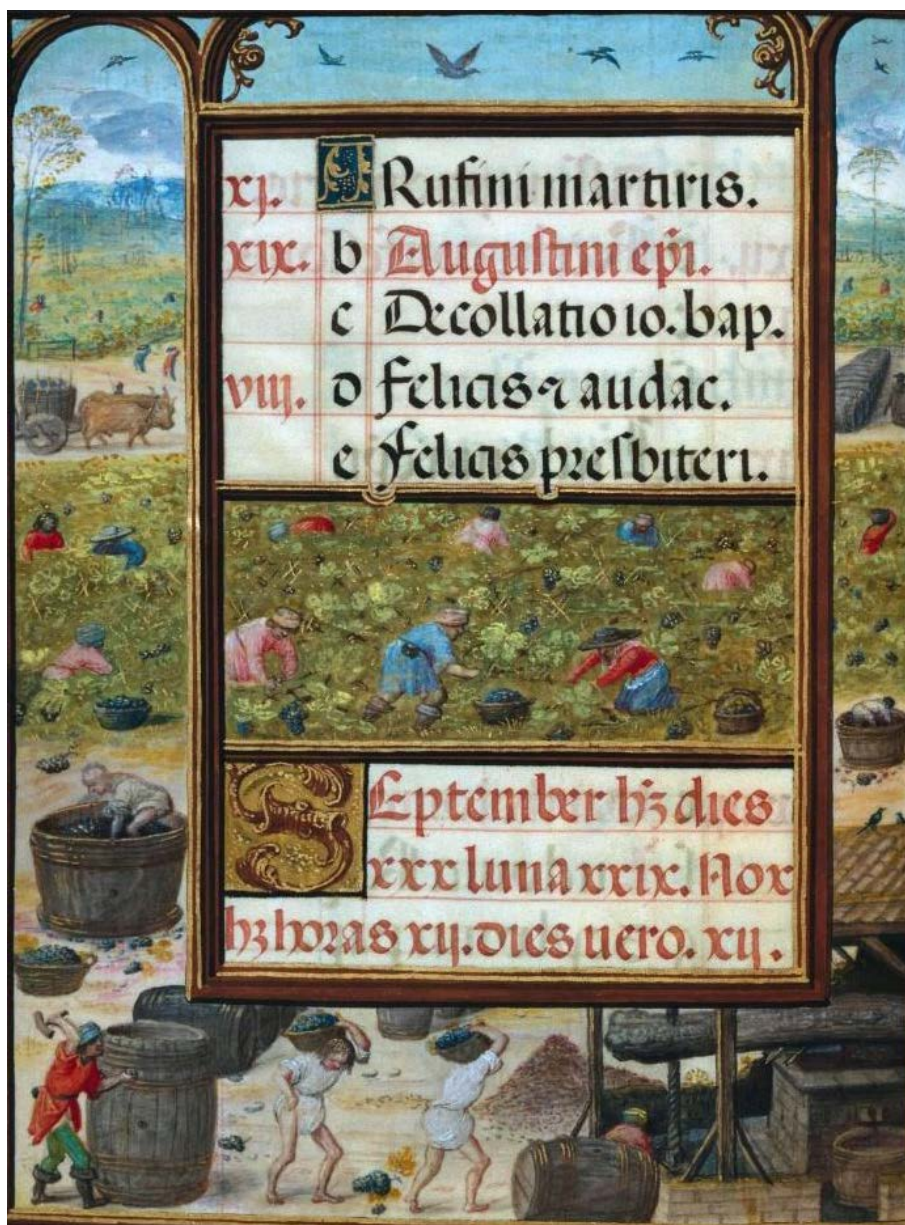 xj. A Rufini martiris.
xix. b Augustini epi.
c Decollatio io. bap.
viij. d felicis ⁊ audac.
e felicis presbiteri.
September hꝫ dies
xxx luna xxix. Nox
hꝫ horas xij. dies uero. xij.